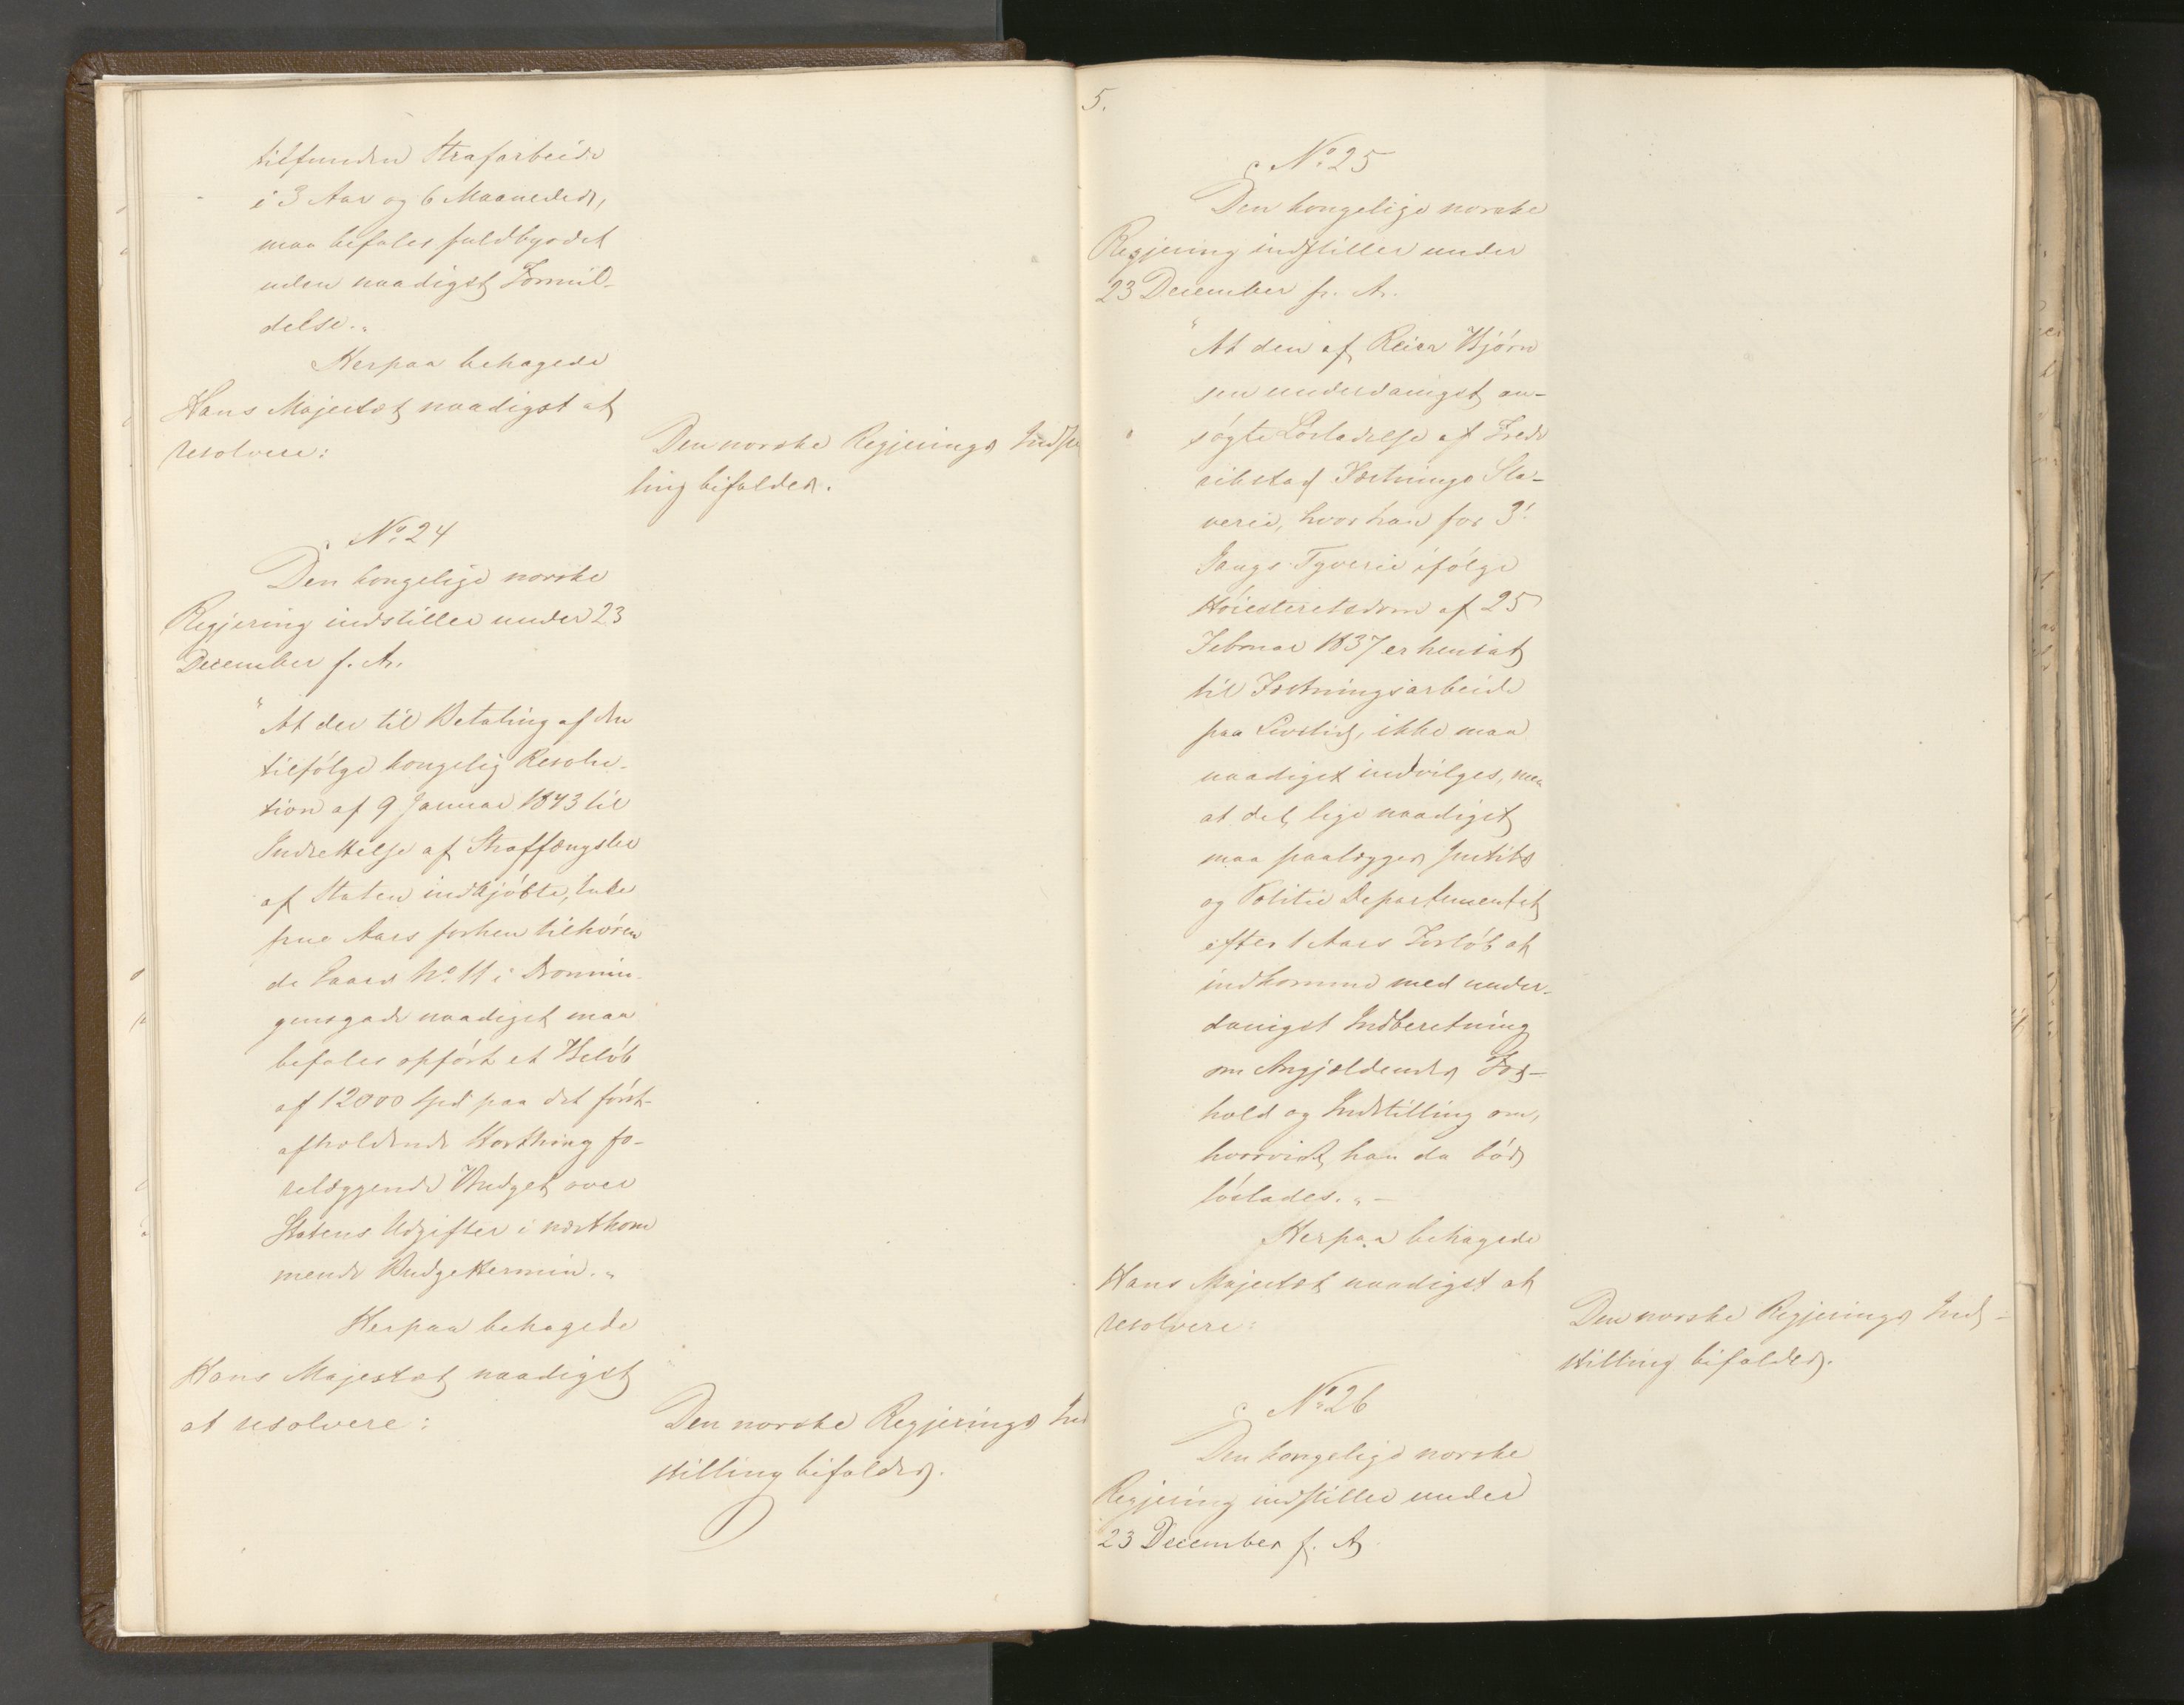 tilfunden Strafarbeide
i 3 Aar og 6 Maaneder,
maa befales fuldbyrdet
uden naadigst Formil-
delse."
Herpaa behagede
Hans Majestæt naadigst at
resolvere:
Den norske Regjerings Indstil
ling bifaldes.
No 24
Den kongelige norske
Regjering indstiller under 23
December f. A.
"At der til Betaling af den
tilfølge kongelig Resolu-
tion af 9 Januar 1843 til
Indrettelse af Straffængsler
af Staten indkjøbte,
frue Aars forhen tilhøren
de Gaard No. 11 i Dronnin-
gensgade naadigst maa
befales opført et Beløb
af 12000 Spd paa det først-
afholdende Storthing fo-
relæggende Budget over
Statens Udgifter i næstkom
mende Budgettermin."
Herpaa behagede
Hans Majestæt naadigst
at resolvere:
Den norske Regjerings Ind
stilling bifaldes.
5.
No 25
Den kongelige norske
Regjering indstiller under
23 December f. A.
"At den af Reier Bjørn
sen underdanigst an-
søgte Løsladelse af Fred
rikstad Fæstnings Sla-
verie, hvor han for 3'
Gangs Tyverie ifølge
Høiesteretsdom af 25
Februar 1837 er hensat
til Fæstningsarbeide
paa Livstid, ikke maa
naadigst indvilges, men
at det lige naadigst
maa paalægges Justits
og Politie Departementet
efter 1 Aars Forløb at
indkomme med under-
danigst Indberetning
om Angjældendes For-
hold og Indstilling om,
hvorvidt han da bør
løslades." -
Herpaa behagede
Hans Majestæt naadigst at
resolvere:
Den norske Regjerings Ind-
stilling bifaldes.
No 26
Den kongelige norske
Regjering indstiller under
23 December f. A.